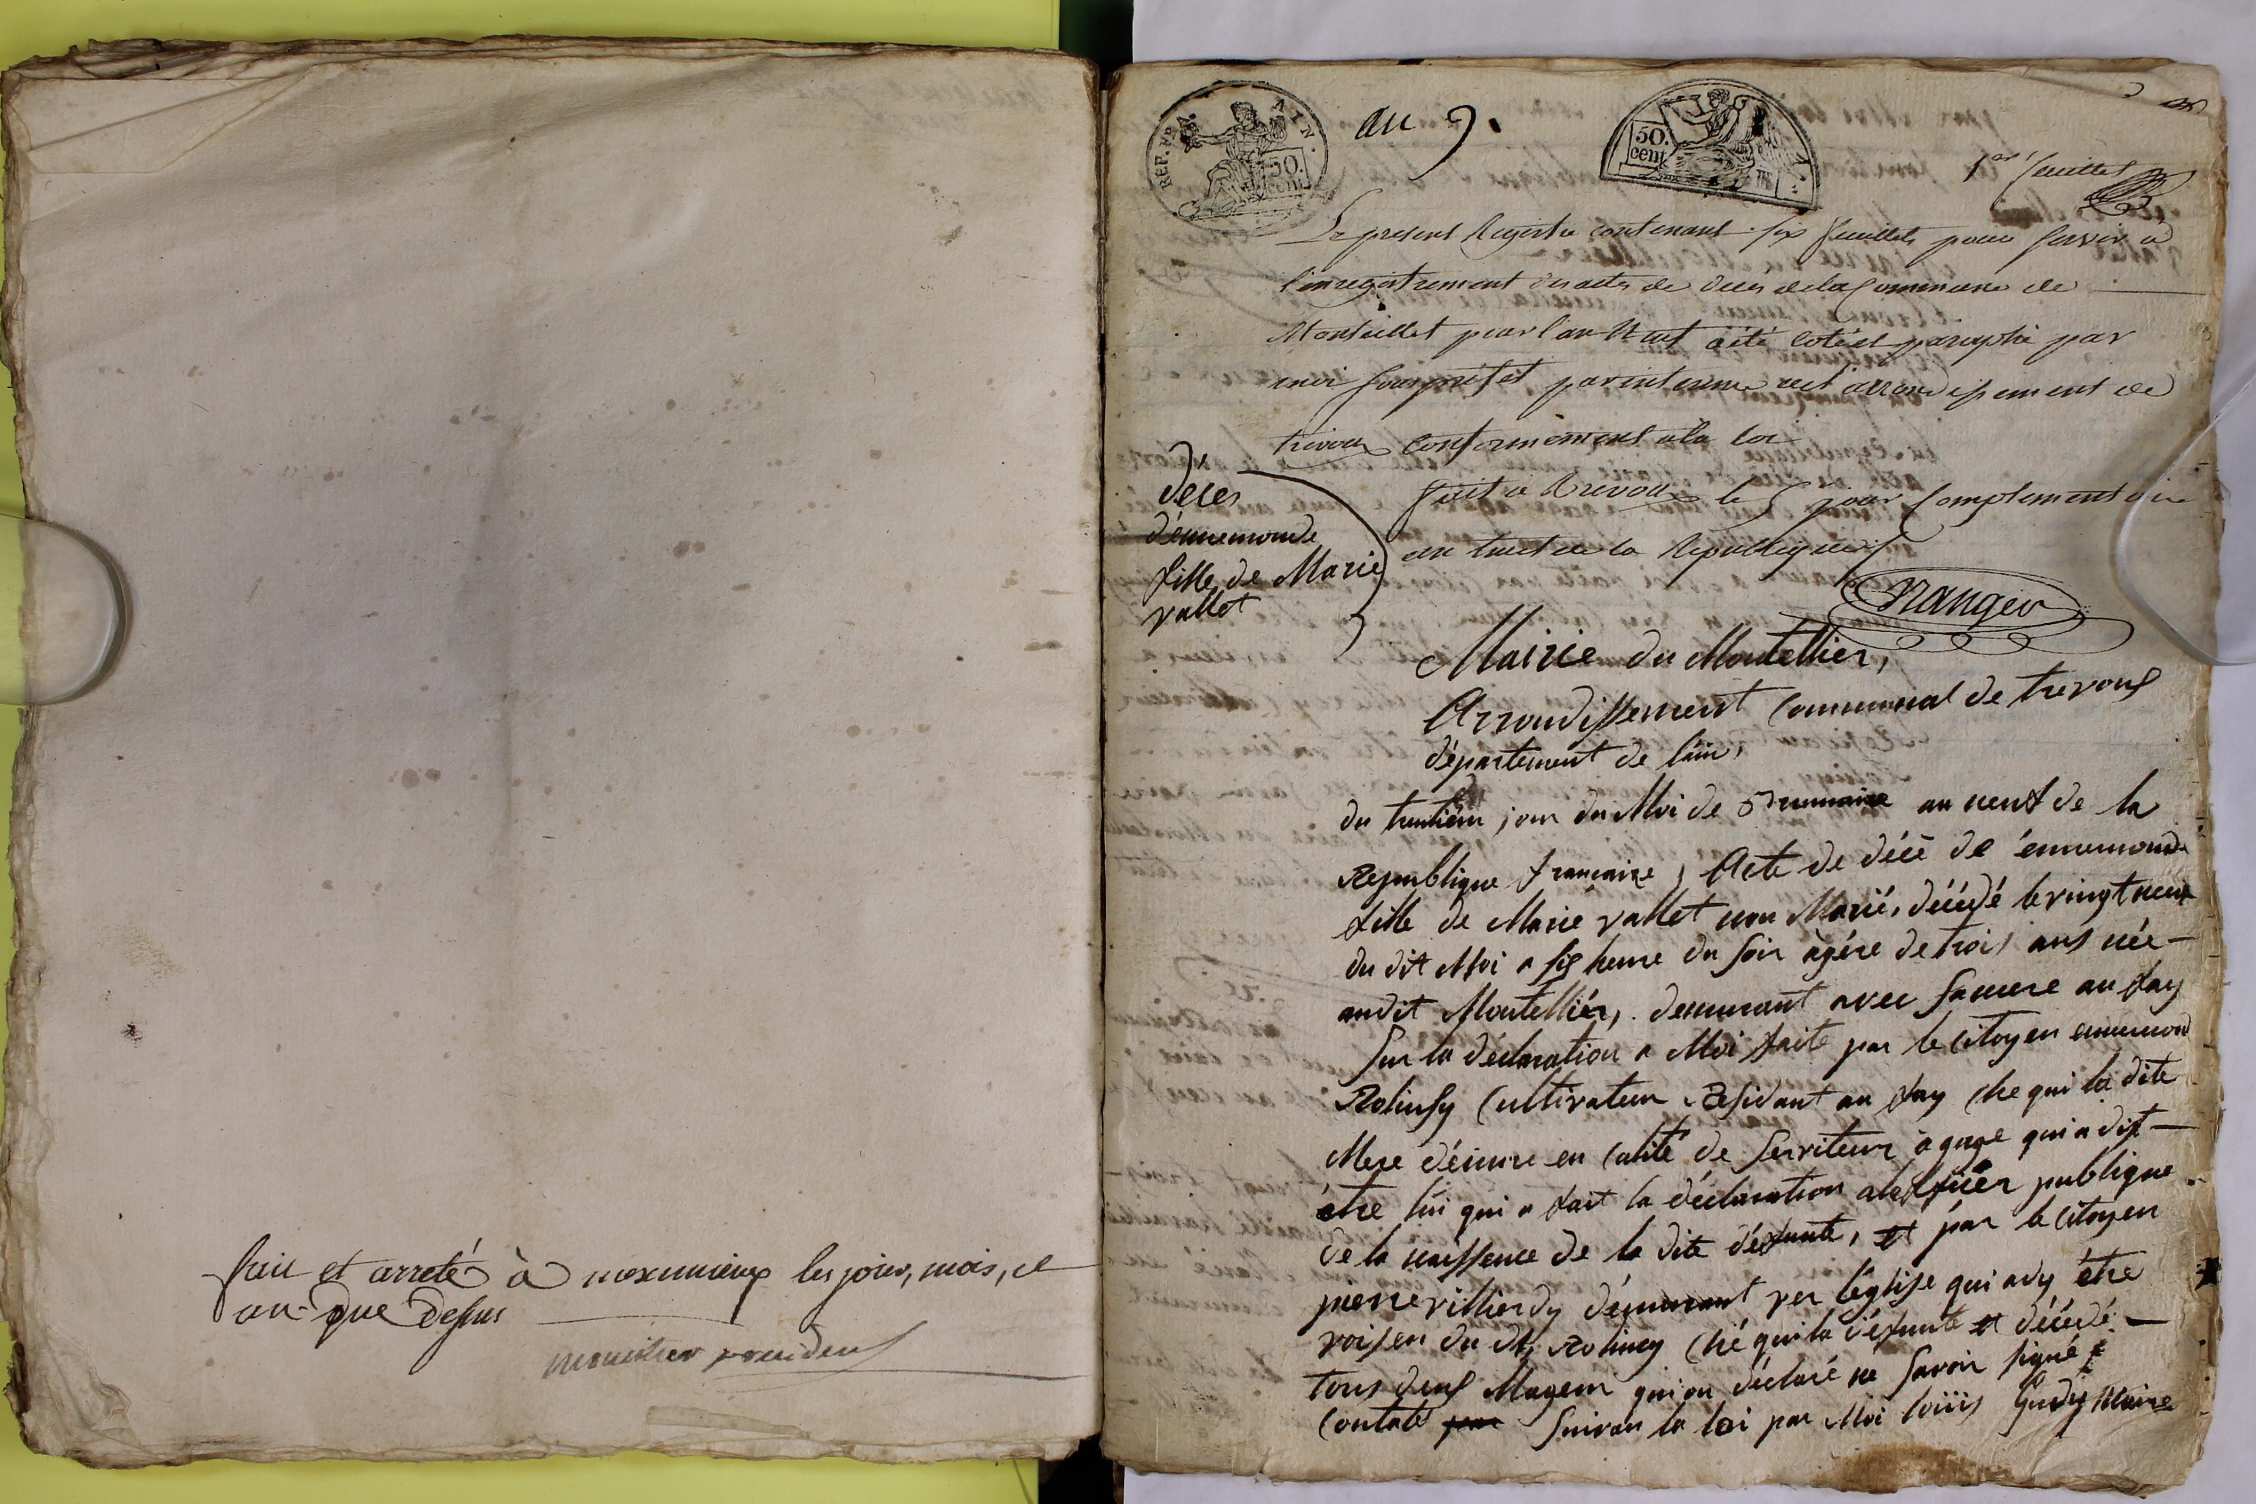 fait et arreté à meximieux les jour, mois, et
an que dessus
president
REP. FRA.
AIN.
50.
cent
an 9.
50.
cent
1er feuillet
Le present Registre contenant six feuillets pour servir a
l'enregistrement des actes de deces de la Commune de
Montellier pour l'an Neuf a été coté et paraphé par
moi sousprefet par interim de l'arrondissement de
trevoux conformement a la loi
fait a trevoux le 5 jour Complementaire
an huit de la Republique
Deces
d'ennemonde
fille de Marie
vallet
Mairie du Montellier,
Arrondissement Communal de trevous
département de l'ain,
du trentiem jour du Moi de Brumaire an neuf de la
Republique francaise, Acte de décé de énnemonde
fille de Marie vallet non Marié, décédé le vingt neuf
du dit Moi a six heure du soir àgére de trois ans née
au dit Montelliér, demurant avec sa mere au fay
sur la déclaration a Moi faite par le citoyen ennemond
Rolinsy Cultivateur Résidant au fay ché qui la dite
Mere démure en calité de serviteur à gage qui a dit
étre lui qui a fait la déclaration a lofficiér publique
de la naissence de la dite défunte, et par le citoyen
pierre villiendy démurant ver léglise qui a dy étre
voisen du dt Rolincy ché qui la défunte et décédé
tous deus Mageur qui on déclaré ne savoir signé
Contaté par suivan la loi par Moi loüis Maire